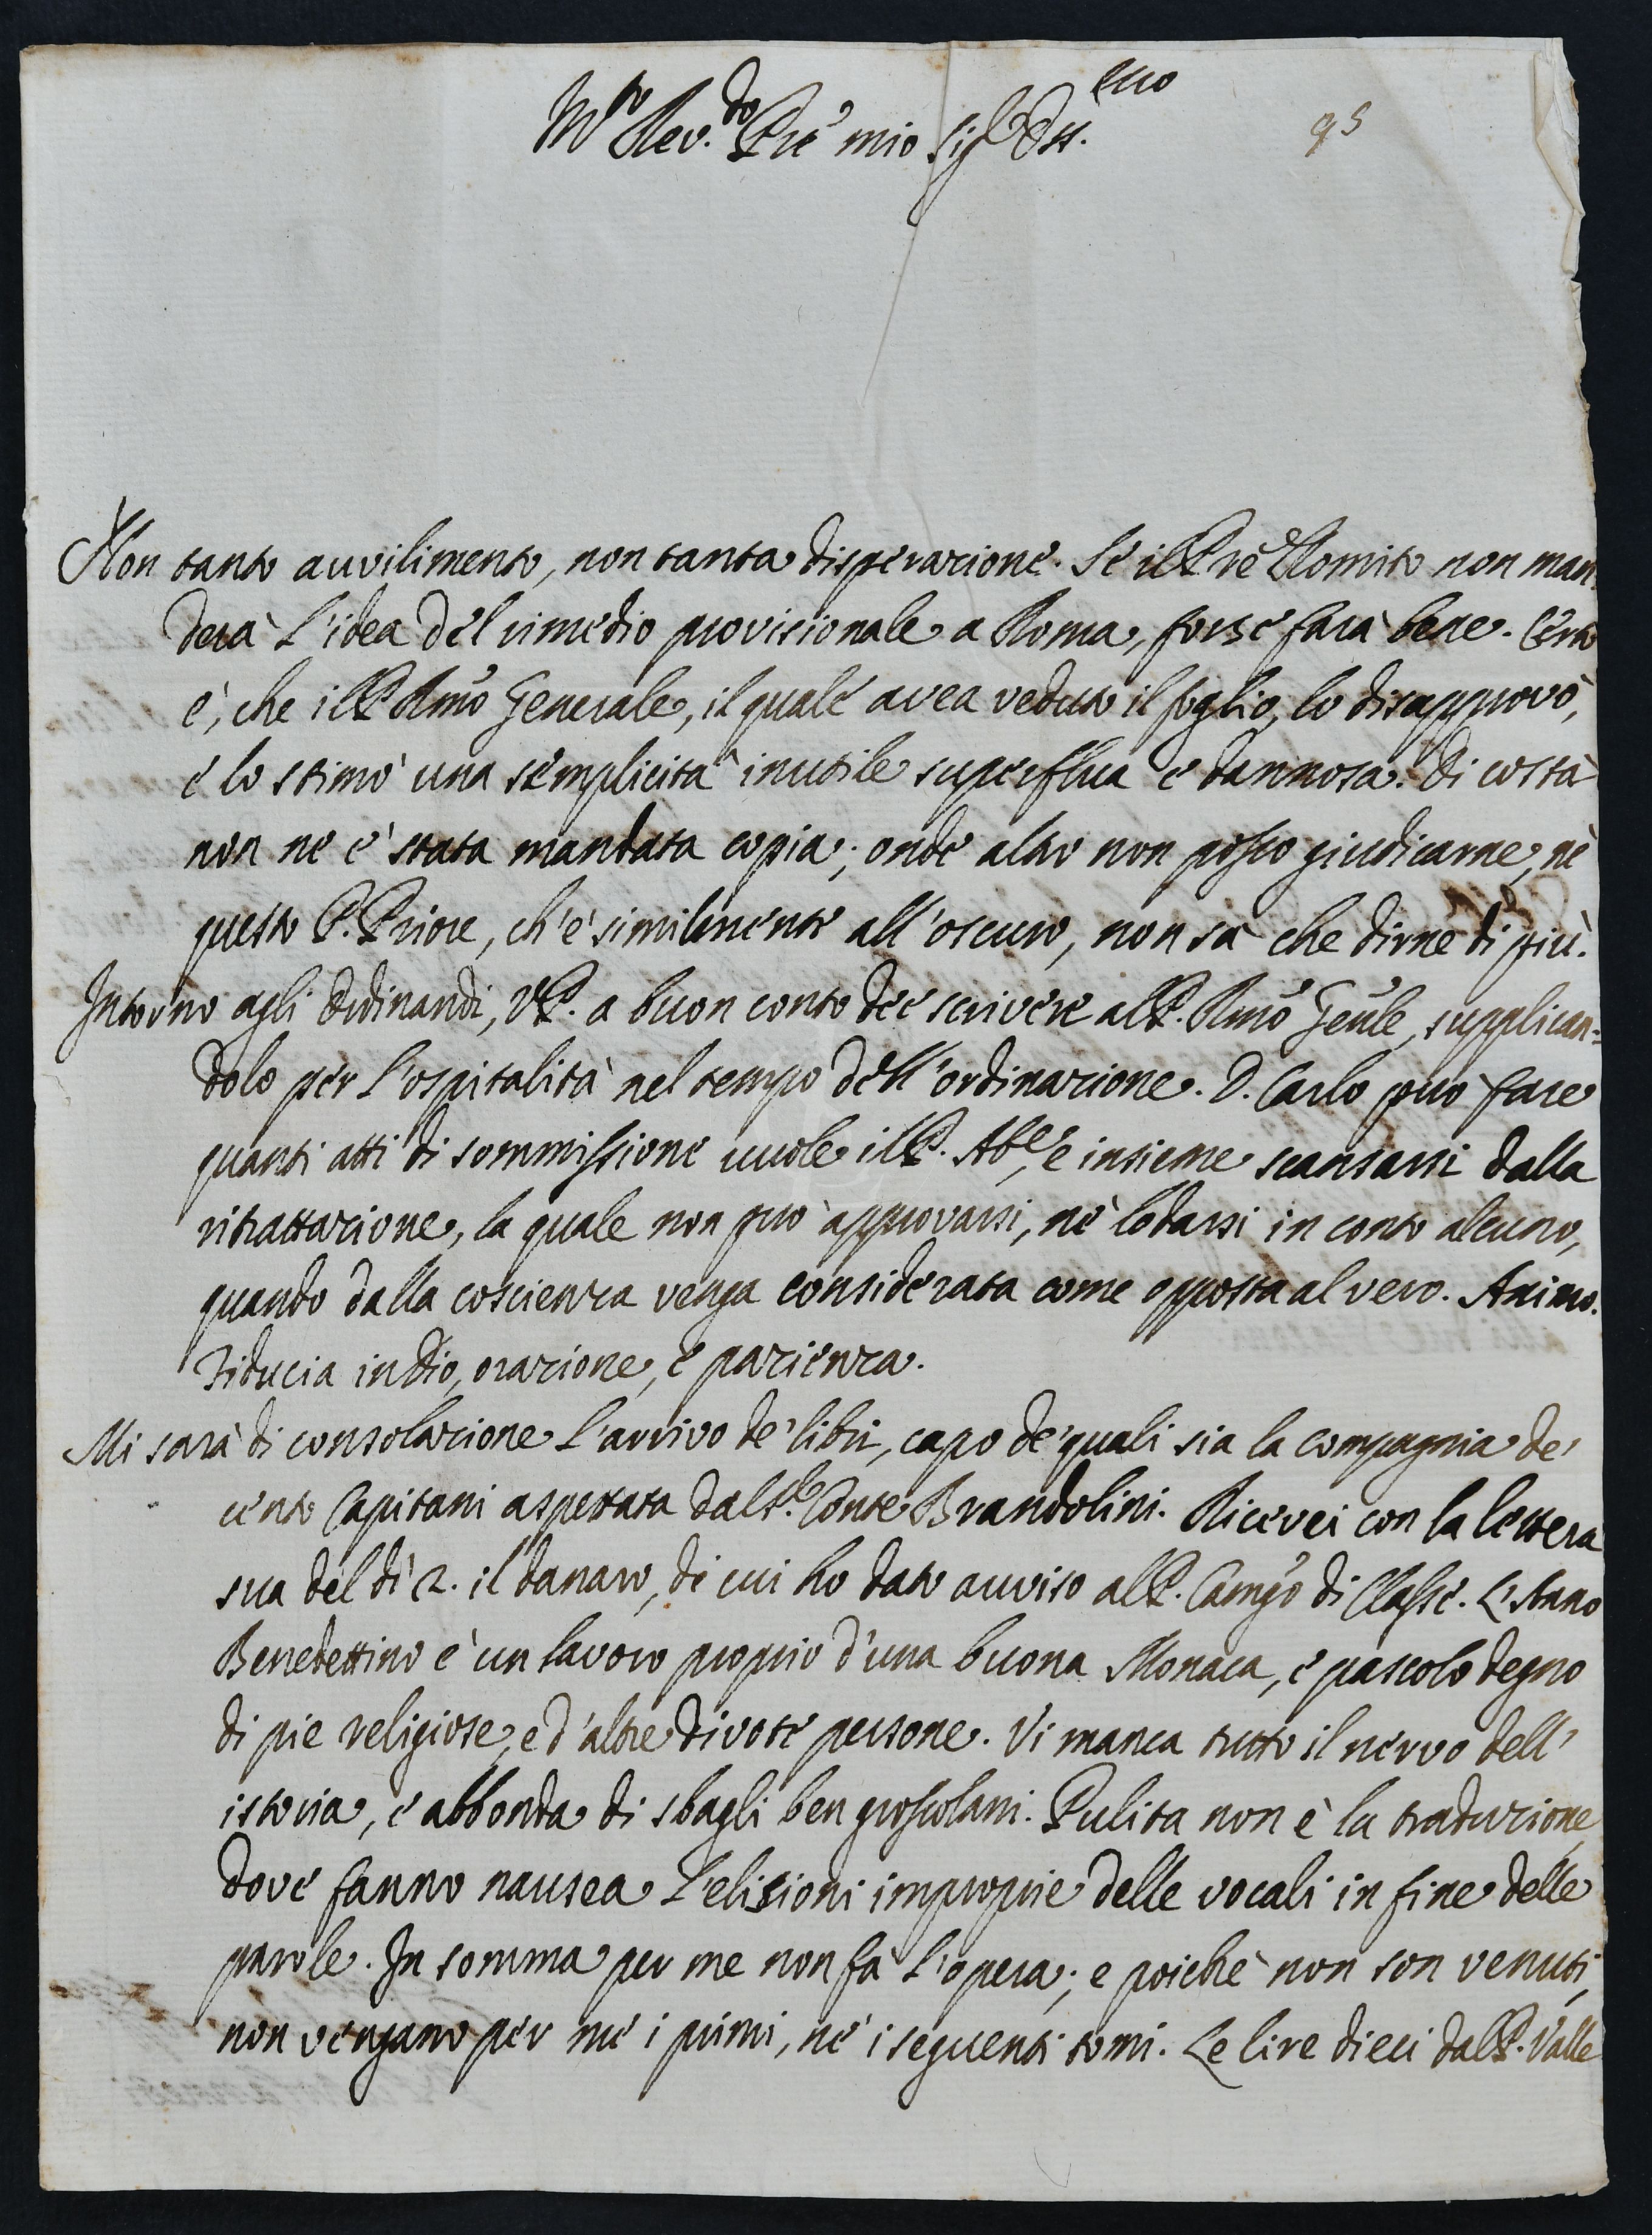 M.to Rev.do Prē mio Sig.r Oss.mo
95
Non tanto auvilimento, non tanta disperazione. Se il Prē Romito non man-
derà l'idea del rimedio provisionale a Roma, forse farà bene. Certo
è, che il P. Rmõ Generale, il quale avea veduto il foglio, lo disapprovò,
e lo stimò una semplicità inutile superflua e dannosa. Di costà
non ne è stata mandata copia; onde altro non posso giudicarne, nè
questo P. Priore, ch'è similmente all'oscuro, non sà che dirne di più.
Intorno agli Ordinandi, VP. a buon conto dee scrivere al P. Rmõ Gēnle, supplican=
dolo per l'ospitalità nel tempo dell'ordinazione. D. Carlo può fare
quanti atti di sommissione vuole il P. Ab.e, e insieme scansarsi dalla
ritrattazione, la quale non può approvarsi, nè lodarsi in conto alcuno,
quando dalla coscienza venga considerata come opposta al vero. Animo.
Fiducia in Dio, orazione, e pazienza.
Mi sarà di consolazione l'arrivo de' libri, capo de' quali sia la compagnia de'
cento Capitani aspettata dal S.r Conte Brandolini. Ricevei con la lettera
sua del dì 2. il danaro, di cui ho dato auviso al P. Camgõ di Classe. L'Anno
Benedettino è un lavoro proprio d'una buona Monaca, e pascolo degno
di pie religiose, e d'altre divote persone. Vi manca tutto il nervo dell'
istoria, e abbonda di sbagli ben grossolani. Pulita non è la traduzione,
dove fanno nausea l'elisioni improprie delle vocali in fine delle
parole. In somma per me non fà l'opera; e poichè non son venuti,
non vengano per me i primi, nè i seguenti tomi. Le lire dieci dal P. Valle